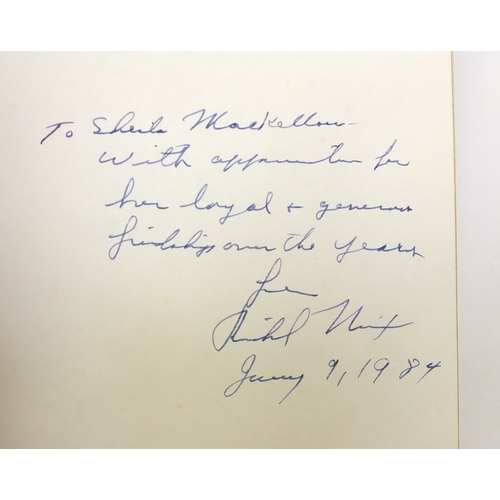 To Sheila MacKellar
With appreciation for
her loyal + generous
friendship over the years
from
Richard Nixon
9, 1984